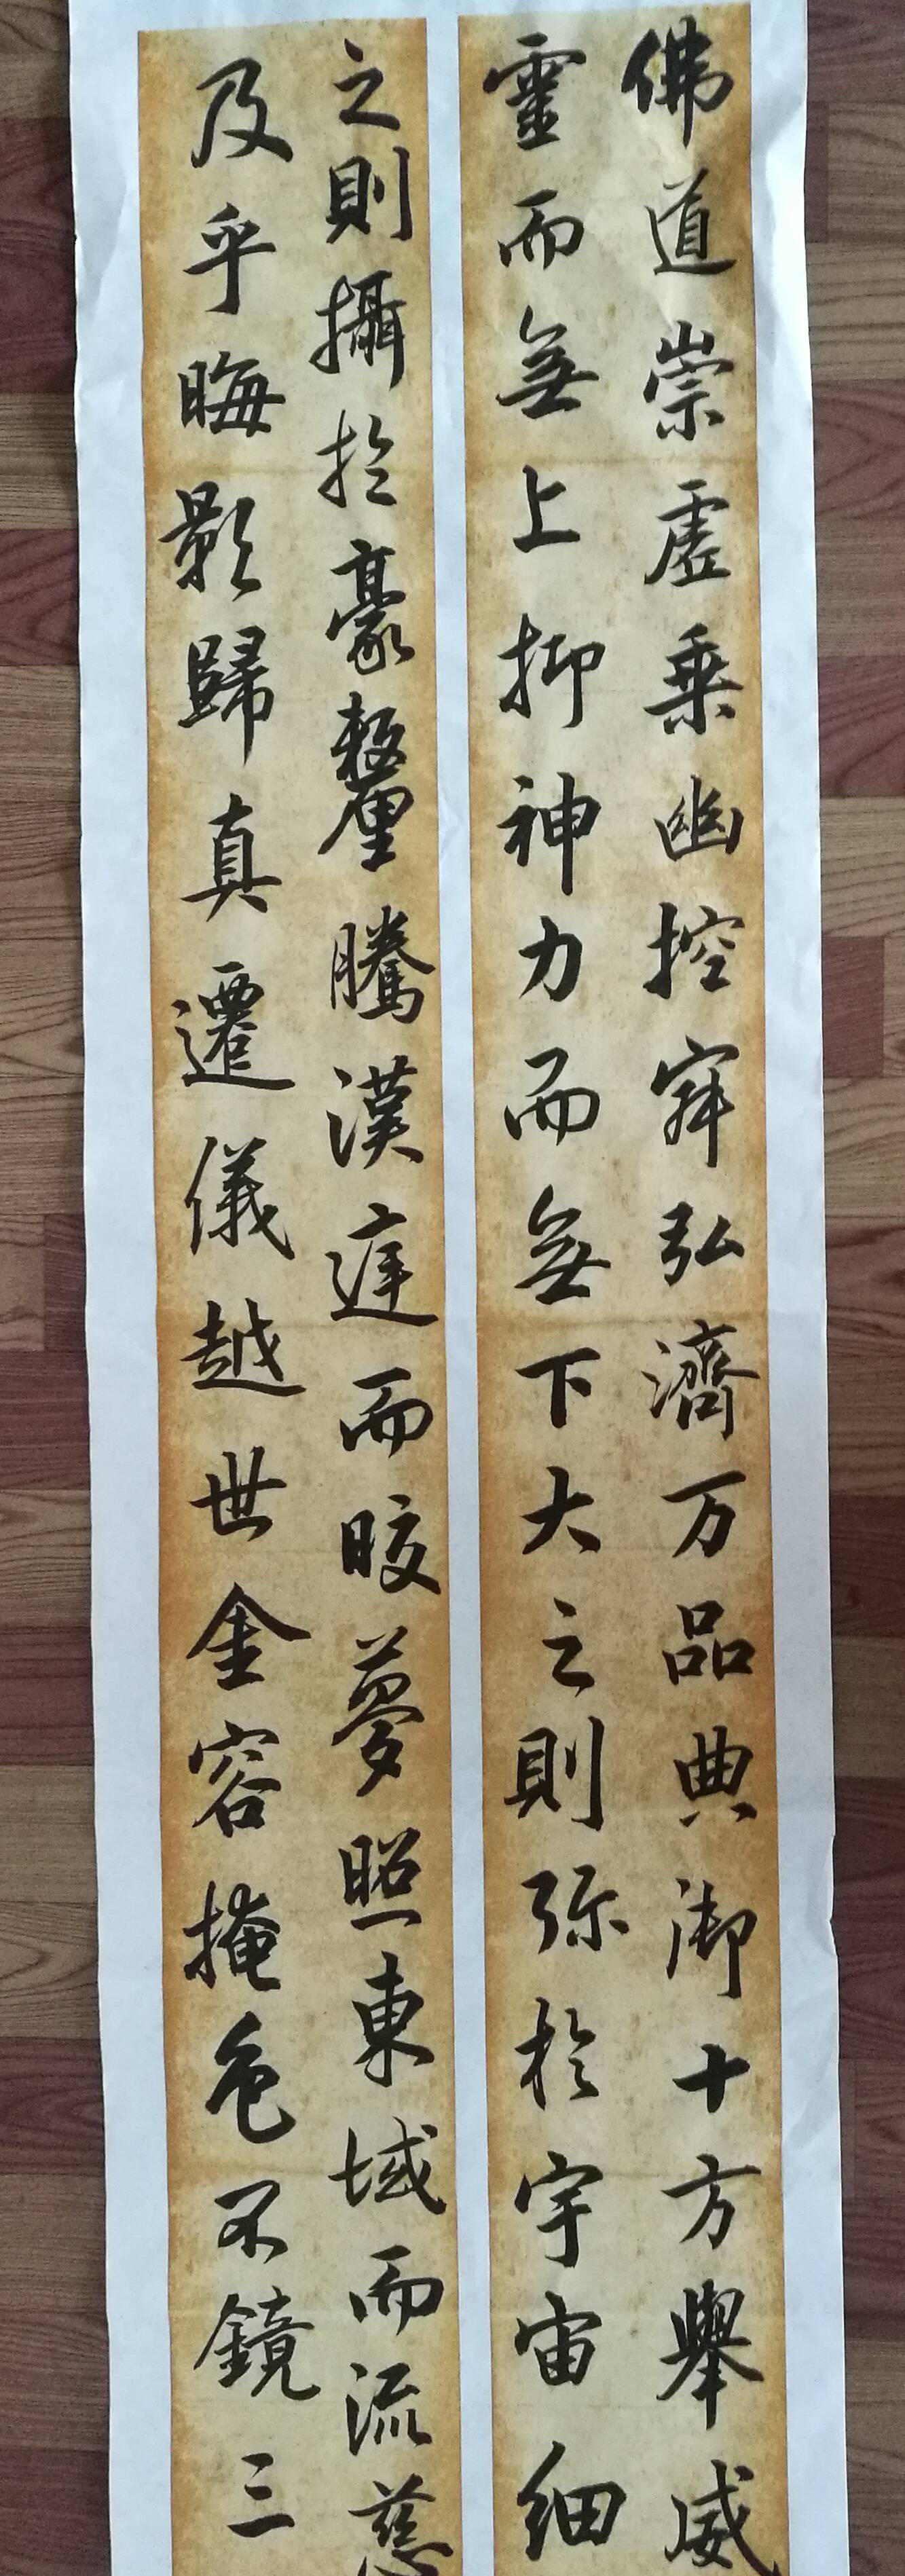 佛道崇虛乗幽控寂弘濟万品典御十方舉威
靈而無上抑神力而無下大之則弥於宇宙細
之則攝於豪釐騰漢庭而晈夢照東域而流慈
及乎晦影歸真遷儀越世金容掩色不鏡三